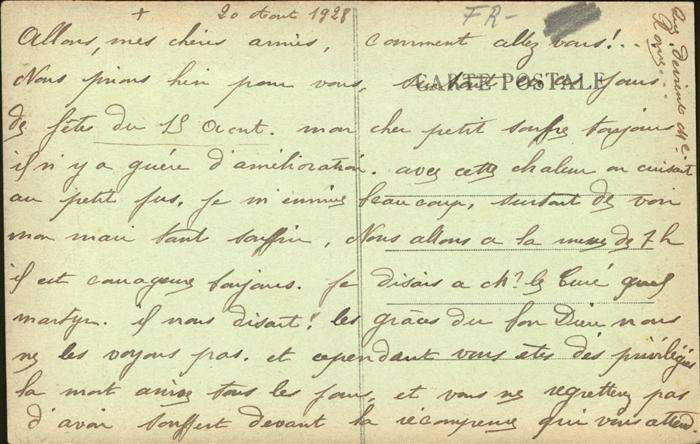 + 20 Aout 1928 FR-
Allons, mes chères amies, comment allez vous!..
Nous prions bien pour vous, ces jours
CARTE POSTALE
de fêtes du 15 Aout. mon cher petit souffre toujours
il n'y a guère d'amélioration. avec cette chaleur on cuisait
au petit feu. Je m'ennuie beaucoup, surtout de voir
mon mari tant souffrir, Nous allons a la messe de 7h
il est courageux toujours. Je disais a Mr le Curé quel
martyr. il nous disait! les grâces du bon Dieu nous
ne les voyons pas. et cependant vous êtes des privilégiés
la mort arrive tous les jours, et vous ne regretterez pas
d'avoir souffert devant la récompense qui vous attend.